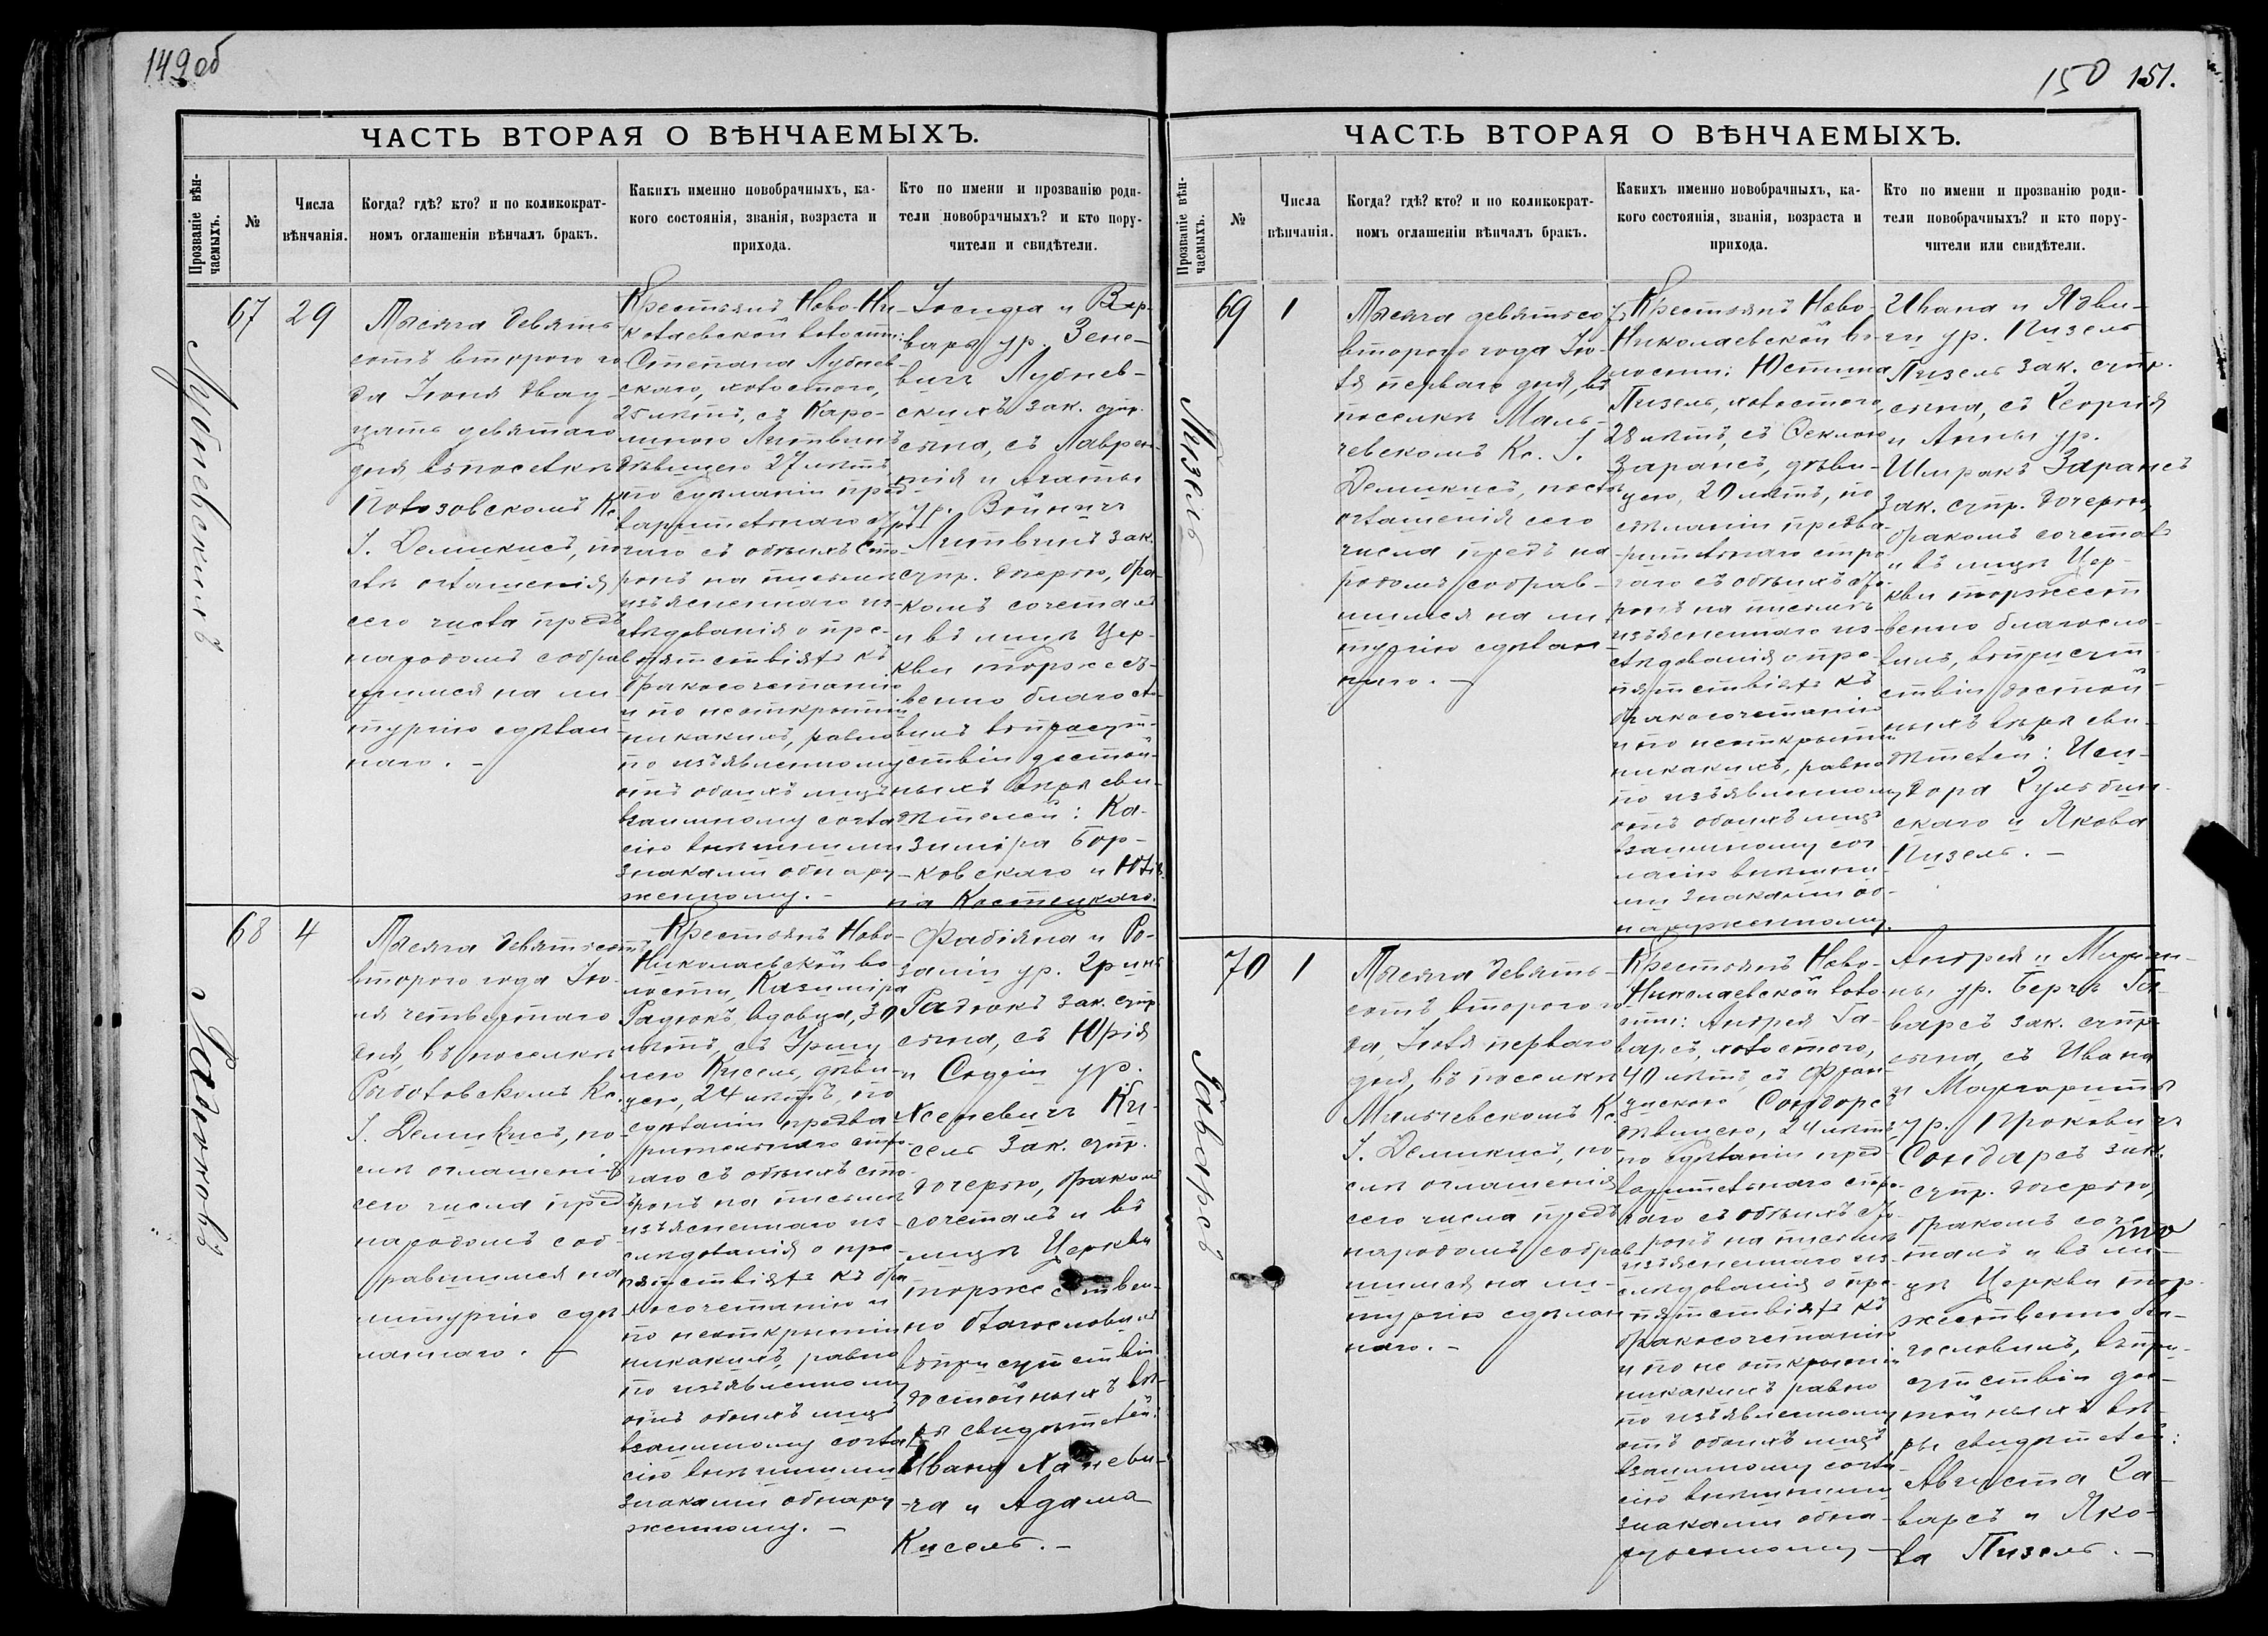 149об
ЧАСТЬ ВТОРАЯ О ВѢНЧАЕМЫХЪ.
Прозваніе вѣн-
чаемыхъ.
№
Числа
вѣнчанія.
Когда? гдѣ? кто? и по коликократ-
номъ оглашеніи вѣнчалъ бракъ.
Какихъ именно новобрачныхъ, ка-
кого состоянія, званія, возраста и
прихода.
Кто по имени и прозванію роди-
тели новобрачныхъ? и кто пору-
чители и свидѣтели.
Лубневскихъ
67
29
Тысяча девять-
сотъ второго го-
да Іюня двад-
цать девятаго
дня, въ поселкѣ
Кс.
І. Демикисъ, по-
слѣ оглашенія
сего числа предъ
народомъ собрав
шимся на ли-
тургію сдѣлан-
наго. –
Крестьянъ Ново-Ни-
колаевской волости:
Степана Лубнев-
скаго, холостого,
25 лѣтъ, съ Каро-
линою Литвинъ
дѣвицею 27 лѣтъ
по сдѣланіи пред
варительнаго стро
гаго съ обѣихъ сто
ронъ на письмѣ
изъясненнаго из-
слѣдованія о пре-
пятствіяхъ къ
бракосочетанію
и по неоткрытіи
никакихъ, равно
по изъявленному
отъ обоихъ лицъ
взаимному согла
сію внѣшними
знаками обнару
женному. –
Іосифа и Вар-
вары ур. Зене-
вичъ Лубнев-
скихъ зак. супр.
сына, съ Лаврен-
тія и Агаты
ур. Войничъ
Литвинъ зак.
супр. дочерью, бра-
комъ сочеталъ
и въ лицѣ Цер-
кви торжест-
венно благосло-
вилъ въ присут-
ствіи достой-
ныхъ вѣры сви-
дѣтелей: Ка-
зиміра Бор-
ковскаго и Юлі-
на Костецкаго.
Радюковъ
68
4
Тысяча девятьсотъ
второго года Ію-
ня четвертаго
дня, въ поселкѣ
Кс.
І. Демикисъ, по-
слѣ оглашенія
сего числа пред
народомъ соб-
равшимся на
литургію сдѣ
ланнаго. –
Крестьянъ Ново-
Николаевской во-
лости, Казиміра
Радюкъ, вдовца, 30
лѣтъ, съ
Кисель, дѣви-
цею, 24 лѣтъ, по
сдѣланіи предва
рительнаго стро
гаго съ обѣихъ сто-
ронъ на письмѣ
изъясненнаго из
слѣдованія о пре
пятствіяхъ къ бра
косочетанію и
по неоткрытіи
никакихъ, равно
по изъявленному
отъ обоихъ лицъ
взаимному согла
сію внѣшними
знаками обнару
женному. –
Фабіяна и Ро-
заліи ур. Гринь
Радюкъ зак. супр
сына, съ Юрія
и Софіи ур.
Ки-
сель зак. супр.
дочерью, бракомъ
сочеталъ и въ
лицѣ Церкви
торжествен-
но благословилъ
въ присутствіи
достойныхъ вѣ-
ры свидѣтелей:
Ивана Ханеви-
ча и Адама
Кисель. –
150 151.
ЧАСТЬ ВТОРАЯ О ВѢНЧАЕМЫХЪ.
Прозваніе вѣн-
чаемыхъ.
№
Числа
вѣнчанія.
Когда? гдѣ? кто? и по коликократ-
номъ оглашеніи вѣнчалъ бракъ.
Какихъ именно новобрачныхъ, ка-
кого состоянія, званія, возраста и
прихода.
Кто по имени и прозванію роди-
тели новобрачныхъ? и кто пору-
чители или свидѣтели.
Пизель
69
1
Тысяча девятьсотъ
второго года Ію-
ля перваго дня, въ
поселкѣ Маль-
чевскомъ Кс. І.
Демикисъ, послѣ
оглашенія сего
числа предъ на
родомъ собрав-
шимся на ли-
тургію сдѣлан-
наго. –
Крестьянъ Ново-
Николаевской во-
лости: Юстина
Пизель, холостого,
28 лѣтъ, съ Феклою
Зарансъ, дѣви-
цею, 20 лѣтъ, по
сдѣланіи предва-
рительнаго стро
гаго съ обѣихъ сто-
ронъ на письмѣ
изъясненнаго из-
слѣдованія о пре-
пятствіяхъ къ
бракосочетанію
и по неоткрытіи
никакихъ, равно
по изъявленному
отъ обоихъ лицъ
взаимному сог
ласію внѣшни-
ми знаками об-
наруженному.
Ивана и Ядви-
ги ур. Пизель
Пизель зак. супр.
сына, съ Георгія
и Анны ур.
Зарансъ
зак. супр. дочерью,
бракомъ сочеталъ
и въ лицѣ Цер-
кви торжест
венно благосло-
вилъ, въ присут-
ствіи достой-
ныхъ вѣры сви-
дѣтелей: Иси-
дора Кульбин-
скаго и Якова
Пизель. –
Гаварсъ
70
1
Тысяча девять-
сотъ второго го
да, Іюля перваго
дня, въ поселкѣ
Мальчевскомъ Кс.
І. Демикисъ, по-
слѣ оглашенія
сего числа предъ
народомъ собрав
шимся на ли-
тургію сдѣлан
наго. –
Крестьянъ Ново-
Николаевской воло
сти: Андрея Га-
варсъ, холостого,
40 лѣтъ, съ Фран-
цискою Сондарсъ
дѣвицею, 24 лѣтъ
по сдѣланіи пред
варительнаго стро-
гаго съ обѣихъ сто-
ронъ на письмѣ
изъясненнаго из-
слѣдованія о пре-
пятствіяхъ къ
бракосочетанію
и по не открытіи
никакихъ равно
по изъявленному
отъ обоихъ лицъ
взаимному согла
сію внѣшними
знаками обна-
руженному –
Андрея и
ны ур. Га-
варсъ зак. супр.
сына, съ Ивана
и Маргариты
ур.
Сондарсъ зак.
супр. дочерью,
бракомъ соче-
талъ и въ ли-
цѣ Церкви тор-
жественно бла-
гословилъ, въ при-
сутствіи дос-
тойныхъ вѣ-
ры свидѣтелей:
Августа Га-
варсъ и Яко-
ва Пизель. –